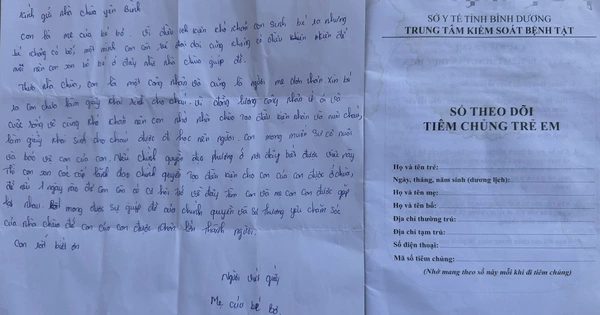 Kính gửi nhà chùa yên Bình
Con là mẹ của bé bơ. Vì điều kiện khó khăn con sinh bé ra nhưng
bé không có bố, một mình con
mới nên con xin bé bé ở đây nhờ nhà chùa giúp đỡ.
Thưa nhà chùa, con là một công nhân và cũng là người mẹ đơn thân xin bé
ra con chưa làm giấy khai sinh cho cháu. vì đồng lương công nhân ít ỏi và
cuộc sống vô cùng khó khăn nên con nhờ nhà chùa tạo điều kiện nhận và nuôi cháu,
làm giấy khai sinh cho cháu được đi học nên người. con mong muốn sư cô nuôi
và bảo vệ con của con. Nếu chính quyền địa phương ở nơi đây biết được việc này
thì con xin các cấp lãnh đạo chính quyền tạo điều kiện cho con của con được ở chùa,
để sau 1 ngày nào đó con còn có cơ hội trở về đây tìm con và mẹ con con được gặp
lại nhau mong được sự giúp đỡ của chính quyền và sự thương yêu chăm sóc
của nhà chùa để con của con được nhận lớn thành người.
Con rất biết ơn
Người viết gửi
Mẹ của bé bơ.
SỞ Y TẾ TỈNH BÌNH DƯƠNG
TRUNG TÂM KIỂM SOÁT BỆNH TẬT
SỔ THEO DÕI
TIÊM CHỦNG TRẺ EM
Họ và tên trẻ:
Ngày, tháng, năm sinh (dương lịch):
Họ và tên mẹ:
Họ và tên bố:
Địa chỉ thường trú:
Địa chỉ tạm trú:
Số điện thoại:
Mã số tiêm chủng:
(Nhớ mang theo sổ này mỗi khi đi tiêm chủng)